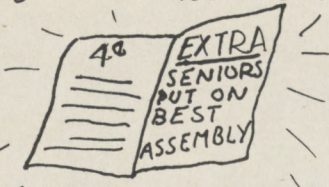 4¢
EXTRA
SENIORS
PUT ON
BEST
ASSEMBLY